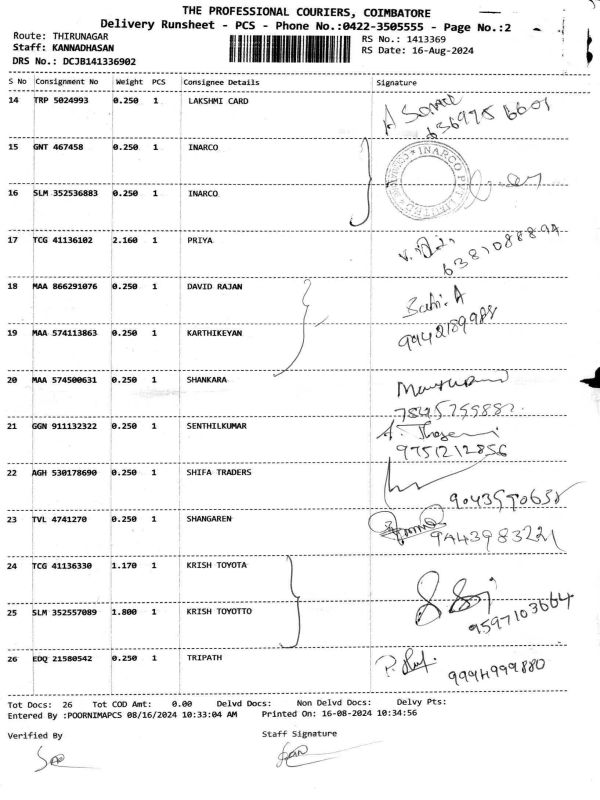 THE PROFESSIONAL COURIERS, COIMBATORE
Delivery Runsheet - PCS - Phone No.:0422-3505555 - Page No.:2
Route: THIRUNAGAR
RS No.: 1413369
Staff: KANNADHASAN
RS Date: 16-Aug-2024
DRS No.: DCJB141336902
S No Consignment No Weight PCS Consignee Details Signature
14 TRP 5024993 0.250 1 LAKSHMI CARD
15 GNT 467458 0.250 1 INARCO
INARCO PVT LIMITED
16 SLM 352536883 0.250 1 INARCO
17 TCG 41136102 2.160 1 PRIYA
6381088894
18 MAA 866291076 0.250 1 DAVID RAJAN
19 MAA 574113863 0.250 1 KARTHIKEYAN
9942189988
20 MAA 574500631 0.250 1 SHANKARA
21 GGN 911132322 0.250 1 SENTHILKUMAR
9751212856
22 AGH 530178690 0.250 1 SHIFA TRADERS
23 TVL 4741270 0.250 1 SHANGAREN
9443983221
24 TCG 41136330 1.170 1 KRISH TOYOTA
25 SLM 352557089 1.800 1 KRISH TOYOTTO
9597103664
26 EDQ 21580542 0.250 1 TRIPATH
9994999880
Tot Docs: 26 Tot COD Amt: 0.00 Delvd Docs: Non Delvd Docs: Delvy Pts:
Entered By :POORNIMAPCS 08/16/2024 10:33:04 AM Printed On: 16-08-2024 10:34:56
Verified By Staff Signature